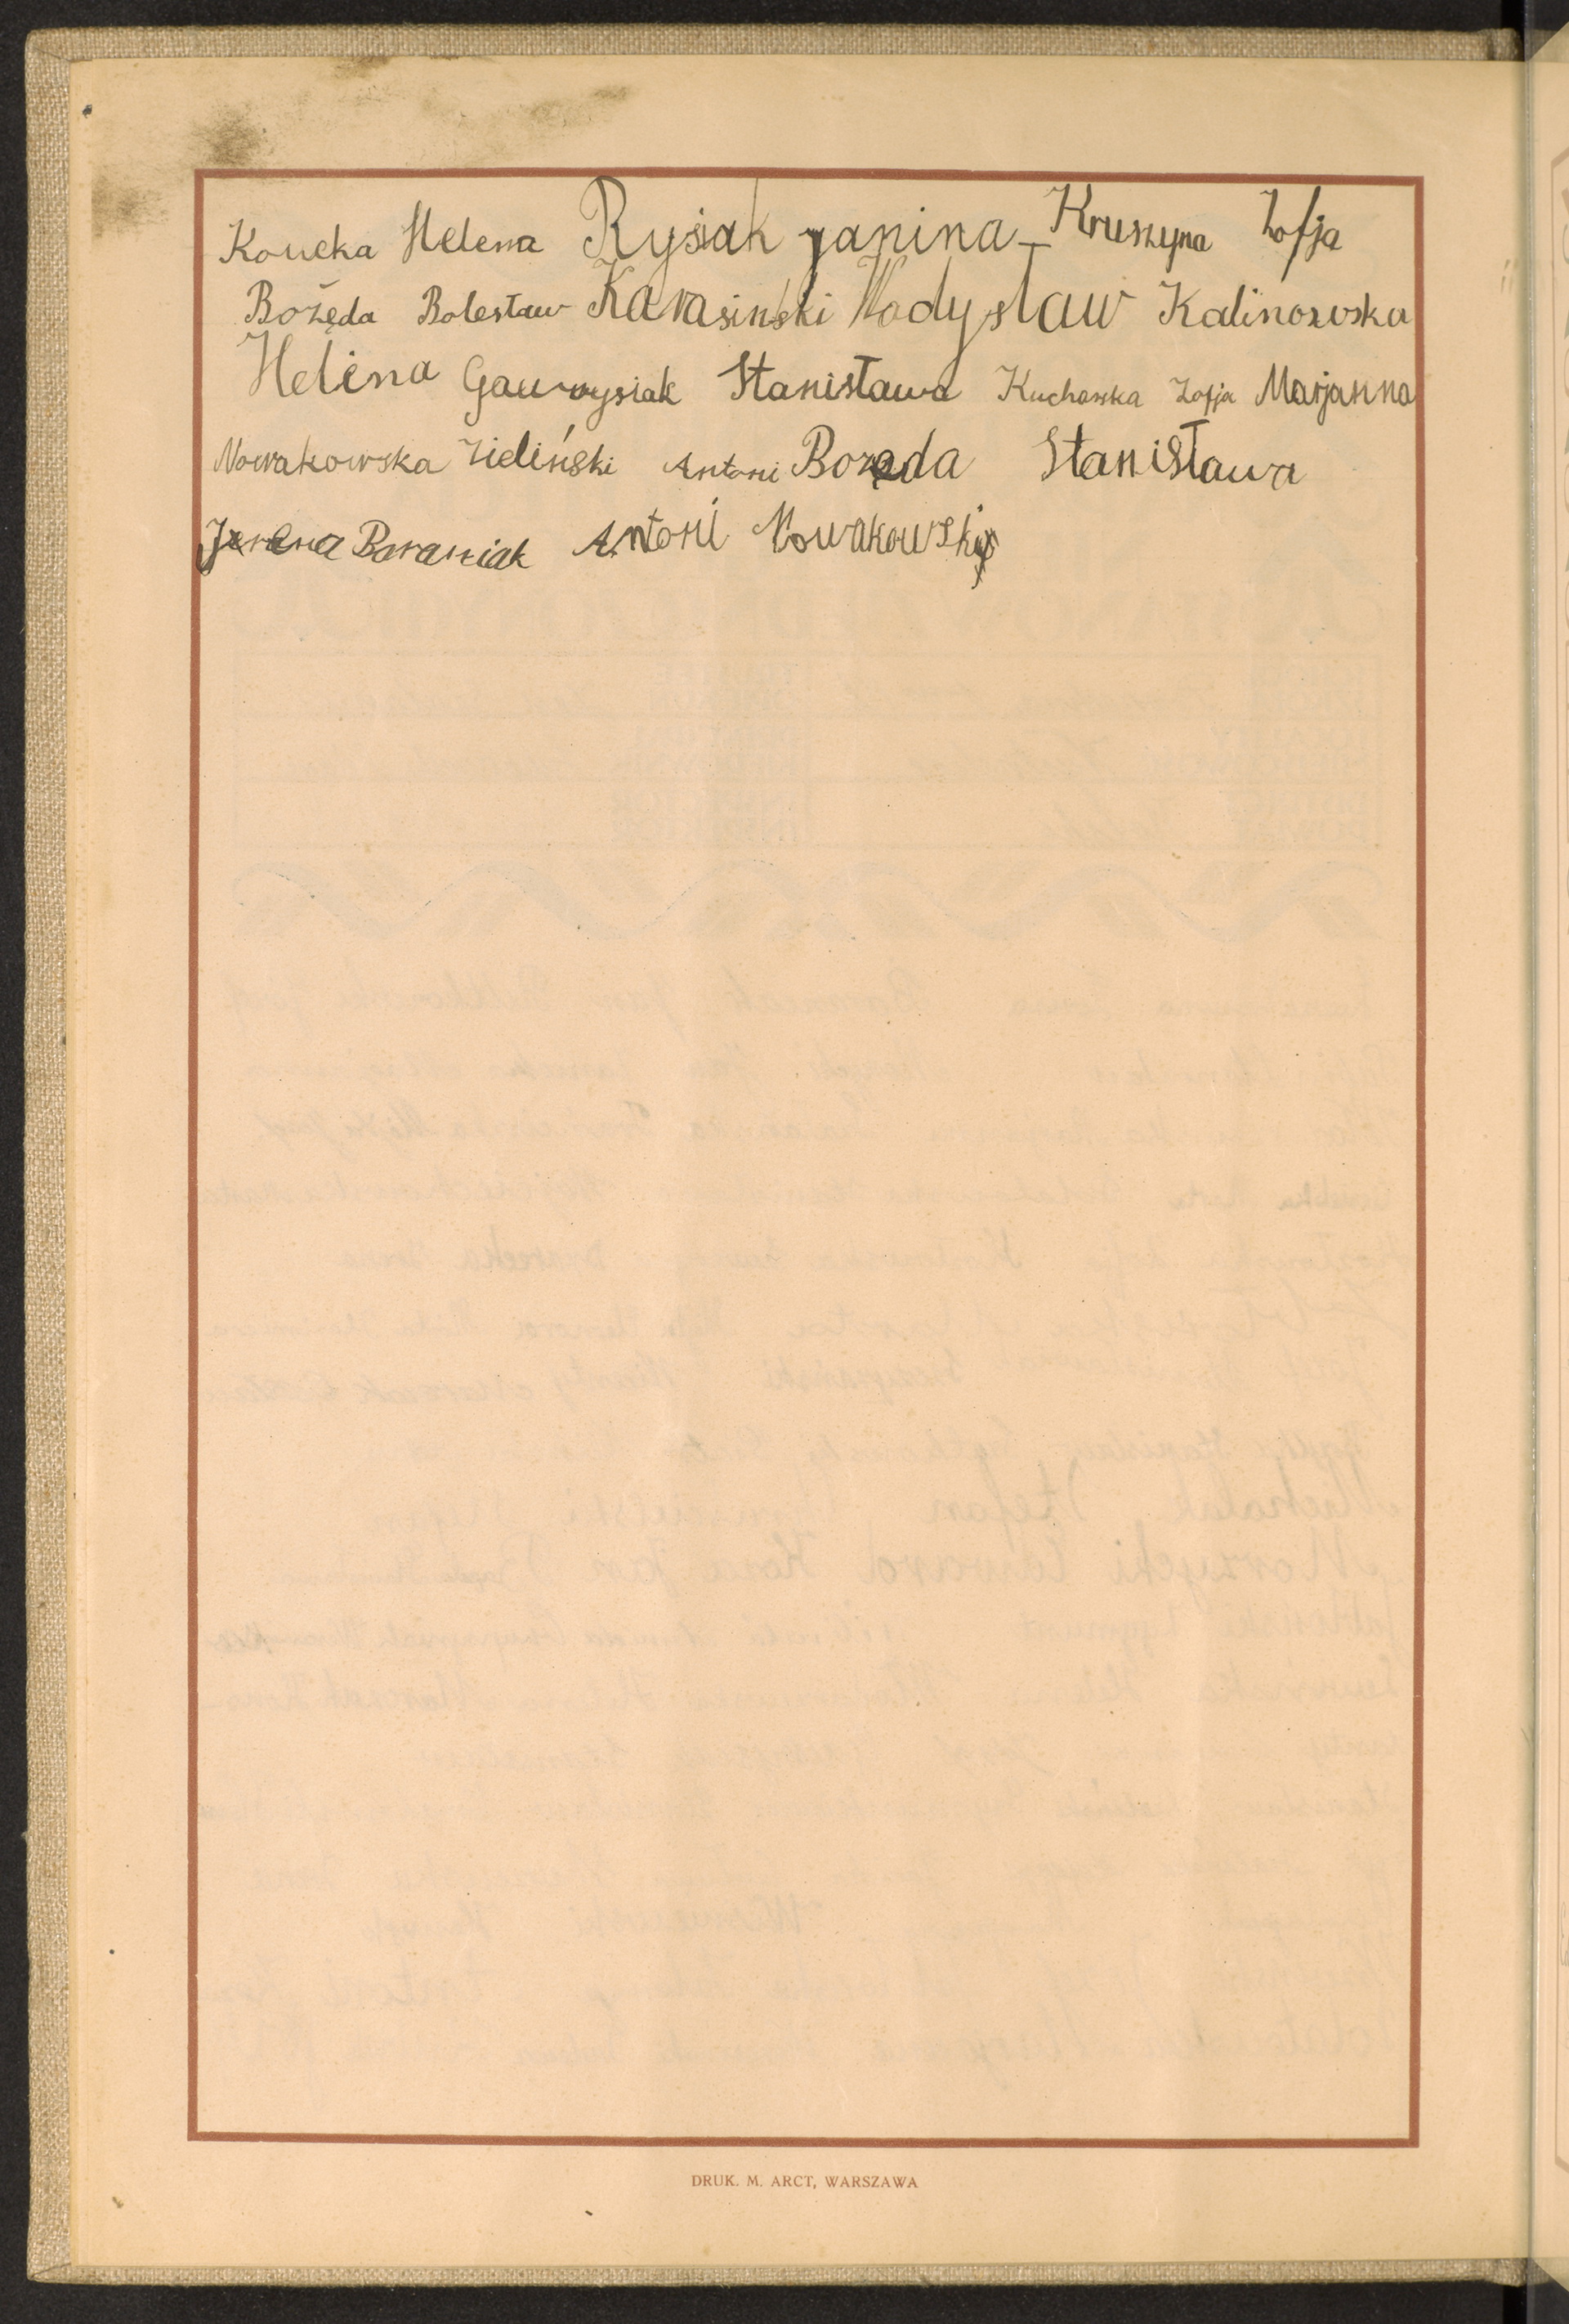 Koucka Helena Rysiak Janina Kruszyna Zofja
Bożęda Bolesław Karasiński Władysław Kalinowska
Helena Gawrysiak Stanisława Kucharska Zofja Marjanna
Nowakowska Zieliński Antoni Bozęda Stanisława
Irena Baraniak Antoni Nowakowski
DRUK. M. ARCT, WARSZAWA